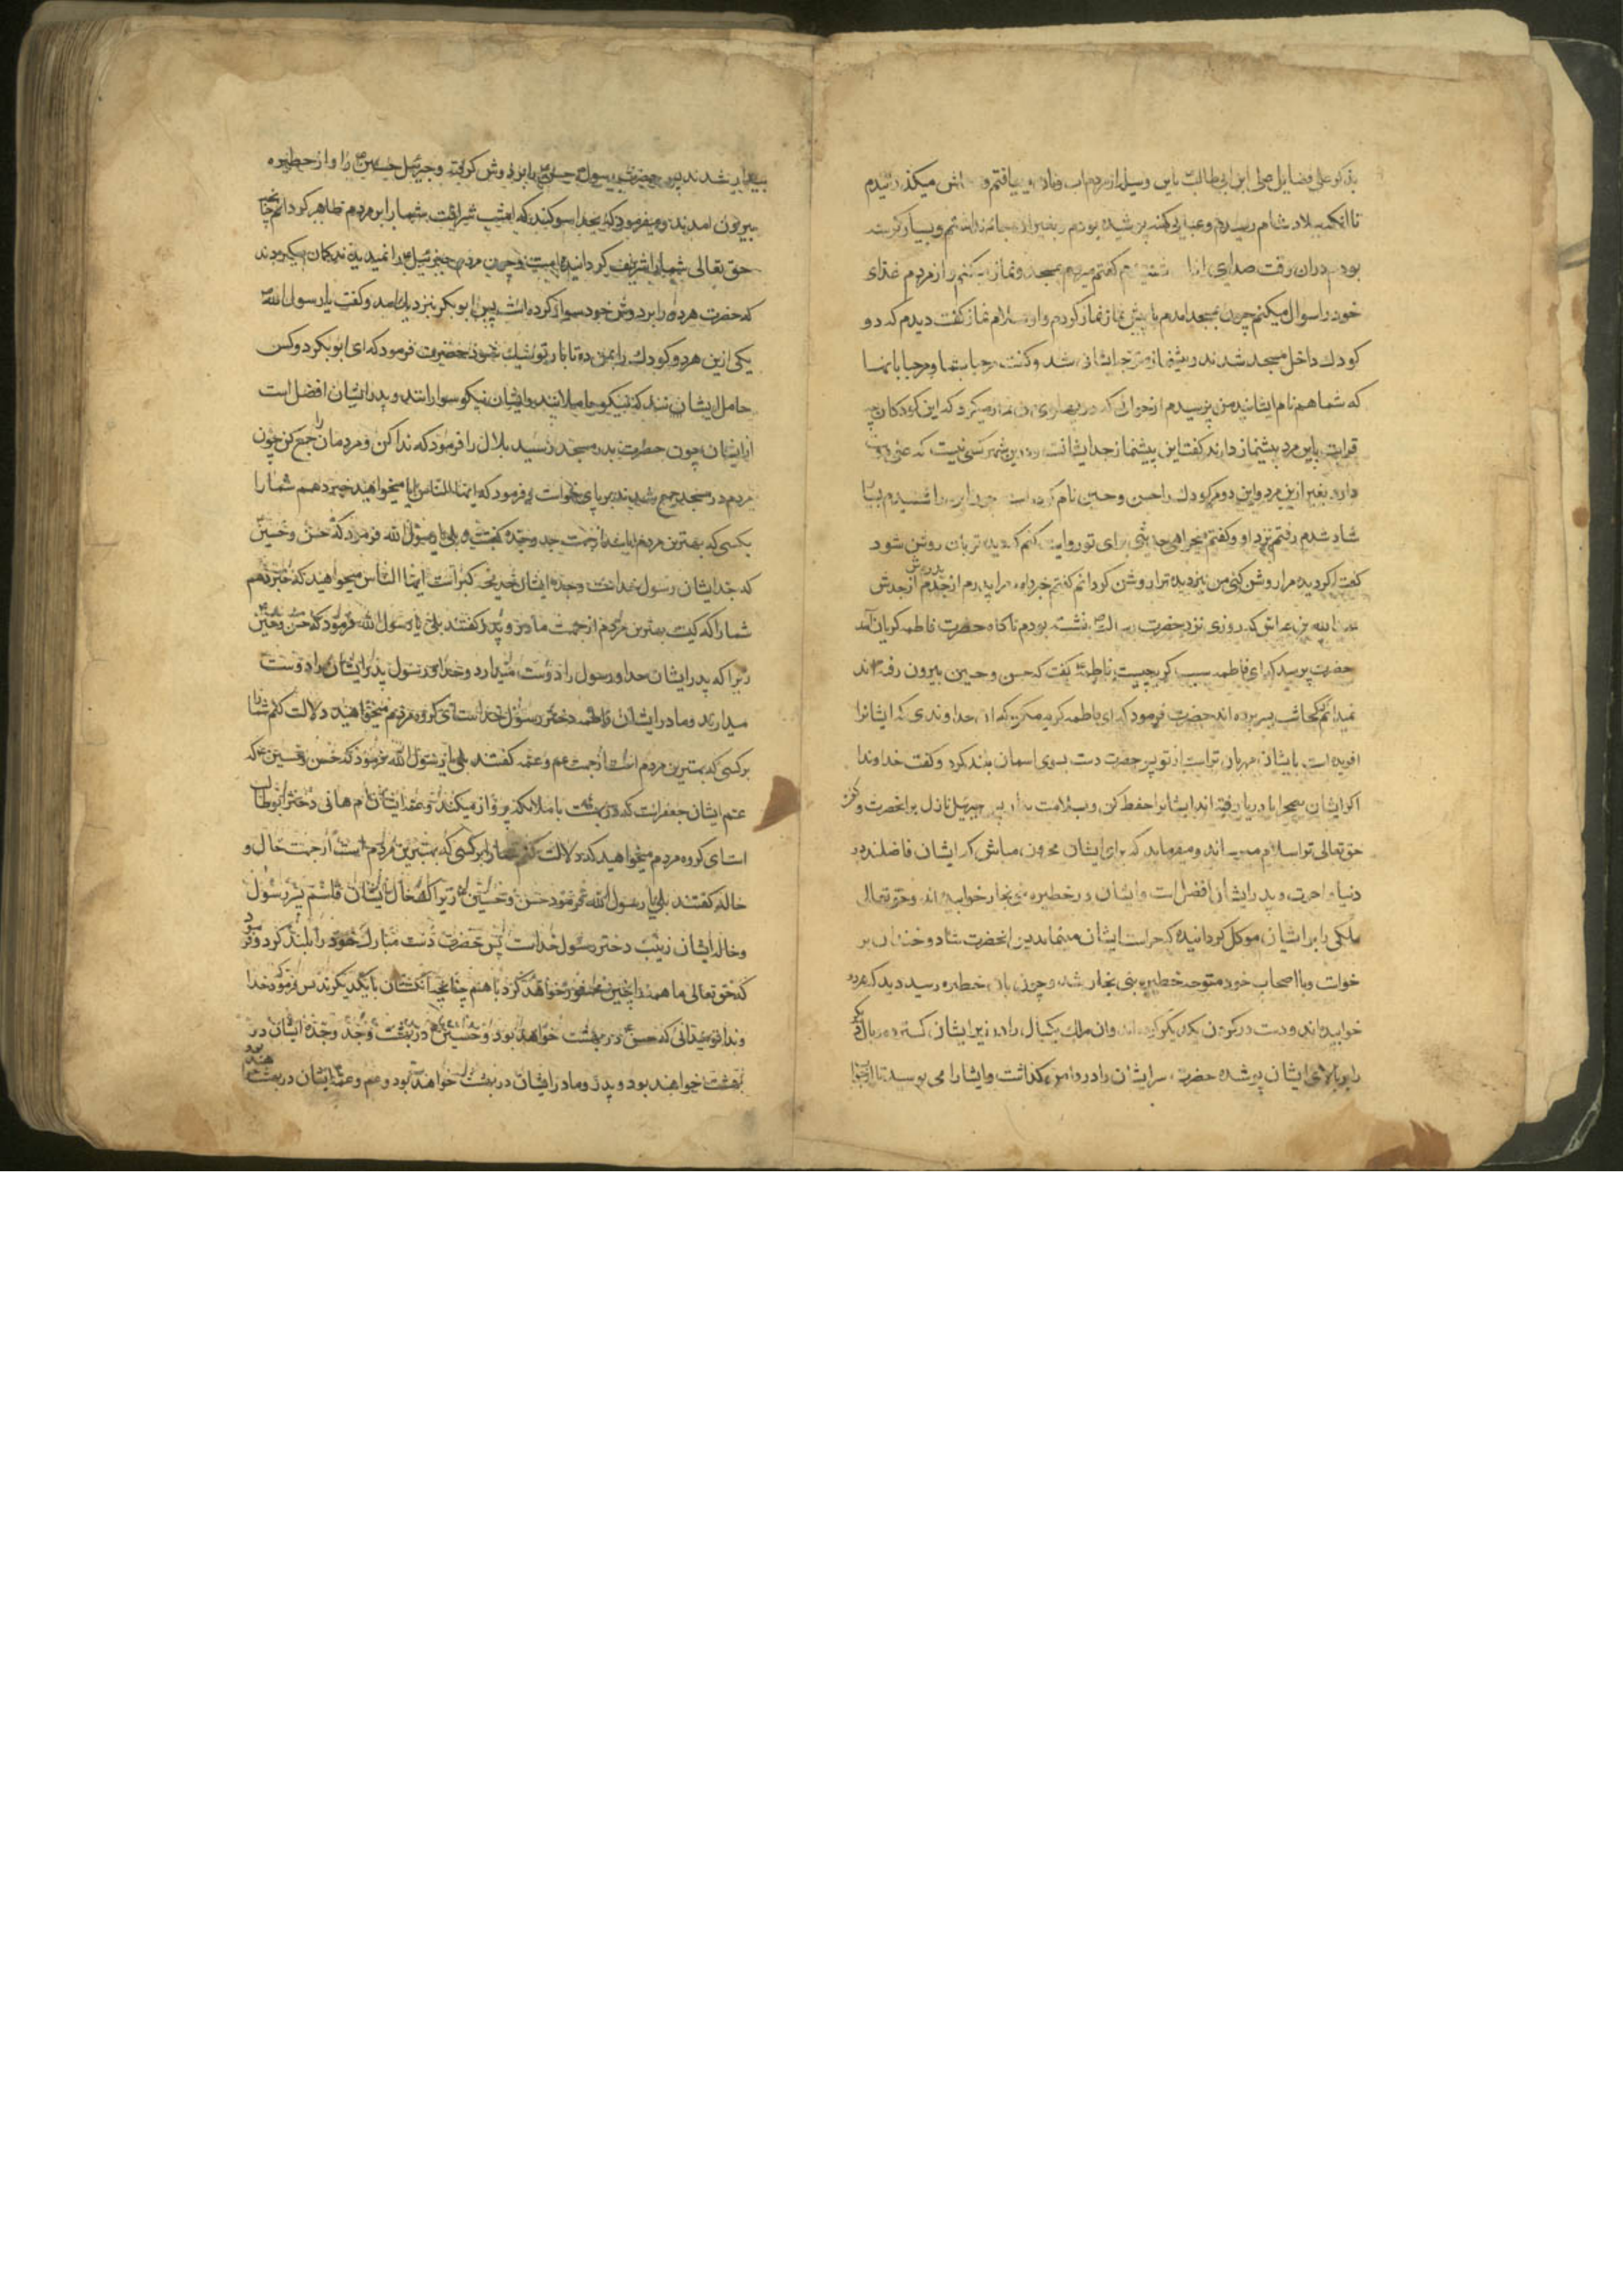 بذکر علی فضایل علی ابن ابی طالب باین وسیله از مردم اب ونان می یافتم و میکذرانیدم
تا انکه ببلاد شام رسیدم وعبای کهنه پوشیده بودم وبغیر از جامه نداشتم وبسیار کرسنه
بودم دران وقت صدای اذان شنیدم کفتم میروم بمسجد ونماز میکنم واز مردم غذای
خود را سوال میکنم چون بمسجد امدم با پیش نماز نماز کردم واو سلام نماز کفت دیدم که دو
کودك داخل مسجد شدند پیشنماز متوجه ایشان شد وکفت مرحبا بشما ومرحبا بانها
که شما هم نام ایشانید من پرسیدم از جوانی که در پهلوی من نماز میکرد که این کودکان چه
قرابت باین مرد پیشنماز دارند کفت این پیشنماز جد ایشانست ودرین شهر کسی نیست که علی دوست
دارد بغیر ازین مرد واین دو کودك را حسن وحسین نام کرده است چون این را شنیدم بسیار
شاد شدم رفتم نزد او وکفتم میخواهی حدیثی برای تو روایت کنم که دیده تو بان روشن شود
کفت اکر دیده مرا روشن کنی من نیز دیده ترا روشن کردانم کفتم خبر داد مرا پدرم از جدم از پدرش از جدش
عبدالله بن عباس که روزی نزد حضرت رسالت نشسته بودم ناکاه حضرت فاطمه کریان آمد
حضرت پرسید که ای فاطمه سبب کریه چیست فاطمه کفت که حسن وحسین بیرون رفته اند
نمیدانم کجا شب بسر برده اند حضرت فرمود که ای فاطمه کریه مکن که ان خداوندی که ایشانرا
افریده است بایشان مهربان تر است از تو پس حضرت دست بسوی اسمان بلند کرد وکفت خداوندا
اکر ایشان بصحرا یا دریا رفته اند ایشانرا حفظ کن وبسلامت بدار پس جبرئیل نازل بر انحضرت وکفت
حق تعالی ترا سلام میرساند ومیفرماید که برای ایشان محزون مباش که ایشان فاضلند در
دنیا واخرت وپدر ایشان افضل است وایشان در حظیره بنی نجار خوابیده اند وحق تعالی
ملکی را بر ایشان موکل کردانیده که حراست ایشان مینماید پس انحضرت شاد وخندان بر
خواست وبا اصحاب خود متوجه حظیره بنی نجار شد وچون بان حظیره رسید دید که هردو
خوابیده اند ودست در کردن یکدیکر کرده اند وان ملك یکبال را در زیر ایشان کسترده وبال دیکر
را بر بالای ایشان پوشیده حضرت سر ایشان را در دامن کذاشت وایشانرا می بوسید تا از خواب
بیدار شدند پس حضرت رسول حسن را بردوش کرفته وجبرئیل حسین را واز حظیره
بیرون امدند ومیفرمود که بخدا سوکند که امشب شرافت شما را بر مردم ظاهر کردانم چنانچه
حق تعالی شما را شریف کردانیده است وچون مردم جبرئیل را نمیدیدند کمان میکردند
که حضرت هر دو را بردوش خود سوار کرده است پس ابوبکر بنزدیك امد وکفت یا رسول الله
یکی ازین هردو کودك را بمن ده تا بار تو سبك شود حضرت فرمود که ای ابوبکر دو کس
حامل ایشان شدند که نیکو حاملانند وایشان نیکو سوارانند وپدر ایشان افضل است
از ایشان چون حضرت بدر مسجد رسید بلال را فرمود که ندا کن ومردمان را جمع کن چون
مردم در مسجد جمع شدند بر پای خواست وفرمود که ایها الناس ایا میخواهید خبر دهم شما را
بکسی که بهترین مردم باشد از جهت جد وجده کفتند بلی یا رسول الله فرمود که حسن وحسین
که جد ایشان رسول خداست وجده ایشان خدیجه کبراست ایها الناس میخواهید که خبر دهم
شما را که کیست بهترین مردم از جهت مادر وپدر کفتند بلی یا رسول الله فرمود که حسن وحسین
زیرا که پدر ایشان خدا ورسول را دوست میدارد وخدا ورسول پدر ایشان را دوست
میدارند ومادر ایشان فاطمه دختر رسول خداست ای کروه مردم میخواهید دلالت کنم شما را
بر کسی که بهترین مردم است از جهت عم وعمه کفتند بلی یا رسول الله فرمود که حسن وحسین که
عم ایشان جعفر است که در بهشت با ملائکه پرواز میکند وعمه ایشان ام هانی دختر ابوطالب
است ای کروه مردم میخواهید که دلالت کنم شما را بر کسی که بهترین مردم است از جهت خال و
خاله کفتند بلی یا رسول الله فرمود حسن وحسین زیرا که خال ایشان قاسم پسر رسول
وخاله ایشان زینب دختر رسول خداست پس حضرت دست مبارك خود را بلند کرد وفرمود
که حق تعالی ما همه را چنین محشور خواهد کرد با هم چنانچه انکشتان با یکدیکرند پس فرمود که خدا
وندا تو میدانی که حسن در بهشت خواهد بود وحسین در بهشت وجد وجده ایشان در
بهشت خواهند بود وپدر ومادر ایشان در بهشت خواهند بود وعم وعمه ایشان در بهشت خواهند بود